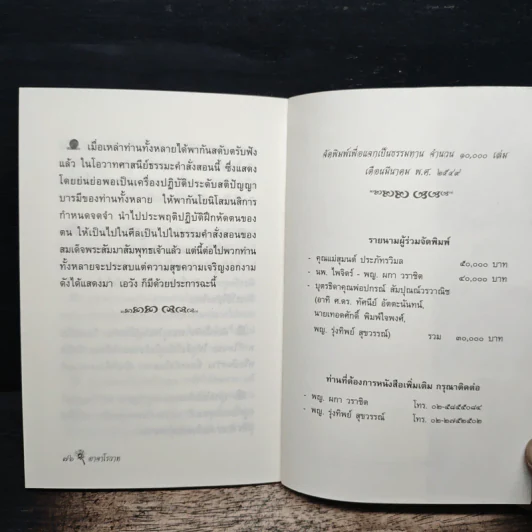 เมื่อเหล่าท่านทั้งหลายได้พากันสดับตรับฟัง
แล้ว ในโอวาทศาสนีย์ธรรมะคำสั่งสอนนี้ ซึ่งแสดง
โดยย่นย่อพอเป็นเครื่องปฏิบัติประดับสติปัญญา
บารมีของท่านทั้งหลาย ให้พากันโยนิโสมนสิการ
กำหนดจดจำ นำไปประพฤติปฏิบัติฝึกหัดตนของ
ตน ให้เป็นไปในศีลเป็นไปในธรรมคำสั่งสอนของ
สมเด็จพระสัมมาสัมพุทธเจ้าแล้ว แต่นี้ต่อไปพวกท่าน
ทั้งหลายจะประสบแต่ความสุขความเจริญงอกงาม
ดังได้แสดงมา เอวัง ก็มีด้วยประการฉะนี้
๗๖
จัดพิมพ์เพื่อแจกเป็นธรรมทาน จำนวน ๑๐,๐๐๐ เล่ม
เดือนมีนาคม พ.ศ. ๒๕๔๙
รายนามผู้ร่วมจัดพิมพ์
- คุณแม่สุมนต์ ประภัทรวิมล ๕๐,๐๐๐ บาท
- นพ. ไพจิตร์ - พญ. ผกา วราชิต ๔๐,๐๐๐ บาท
- บุตรธิดาคุณพ่อปกรณ์ สัมปุณณ์วรวาณิช
(อาทิ ศ.ดร. ทัศนีย์ อัตตะนันทน์,
นายเทอดศักดิ์ พิมพ์ใจพงศ์,
พญ. รุ่งทิพย์ สุขวรรณ์) รวม ๓๐,๐๐๐ บาท
ท่านที่ต้องการหนังสือเพิ่มเติม กรุณาติดต่อ
- พญ. ผกา วราชิต โทร. ๐๒-๕๘๕๕๐๘๔
- พญ. รุ่งทิพย์ สุขวรรณ์ โทร. ๐๒-๒๗๕๒๕๐๒